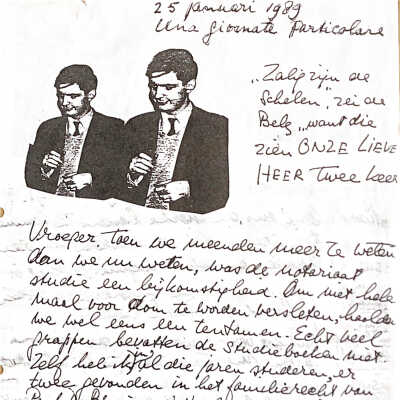 25 januari 1989
Una giornate particolare
„Zalig zijn de
Schelen", zei de
Belg „want die
zien ONZE LIEVE
HEER Twee keer
Vroeger, toen we meenden meer te weten
dan we nu weten, was de notariaat
studie een bijkomstigheid. Om niet hele
maal voor dom te worden versleten, haalden
we wel eens een tentamen. Echt veel
grappen bevatten de studieboeken niet
Zelf heb ik in al die jaren studeren, er
twee gevonden in het familierecht van